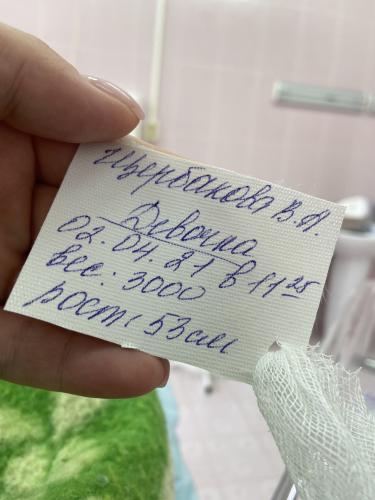 Щербакова В.А.
Девочка
02.04.21 в 11 25
вес: 3000
рост: 53 см